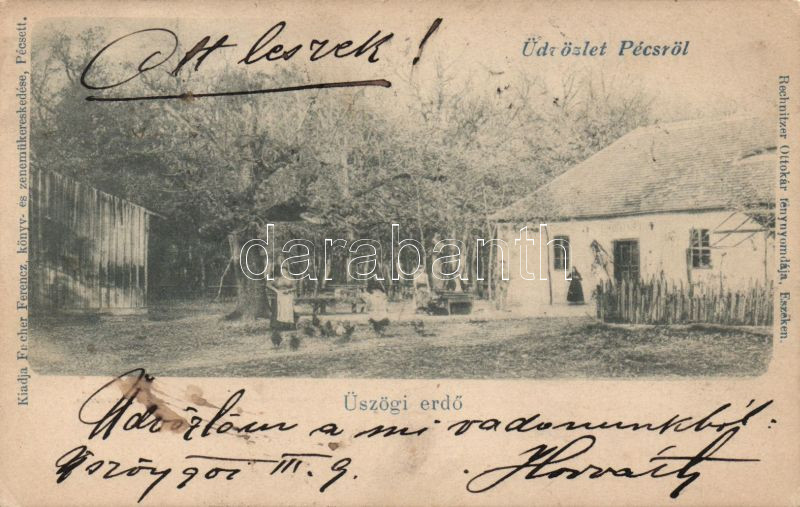 Ott leszek!
Üdvözlet Pécsről
Kiadja Fischer Ferencz, könyv- és zeneműkereskedése, Pécsett.
Rechnitzer Ottokár fénynyomdája, Eszéken.
darabanth.com
Üszögi erdő
Üdvözlöm a mi vadonunkból:
III. 9.
Horváth